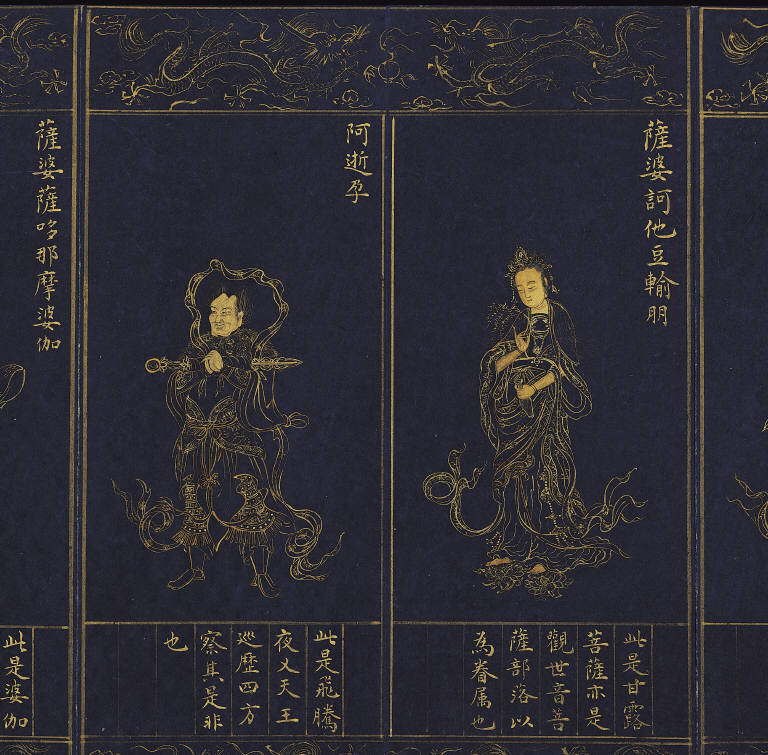 薩婆訶他豆輸朋
此是甘露
菩薩亦是
觀世音菩
薩部落以
為眷属也
阿逝孕
此是飛騰
夜乂天王
巡歷四方
察其是非
也
薩婆薩哆那摩婆伽
此是婆伽